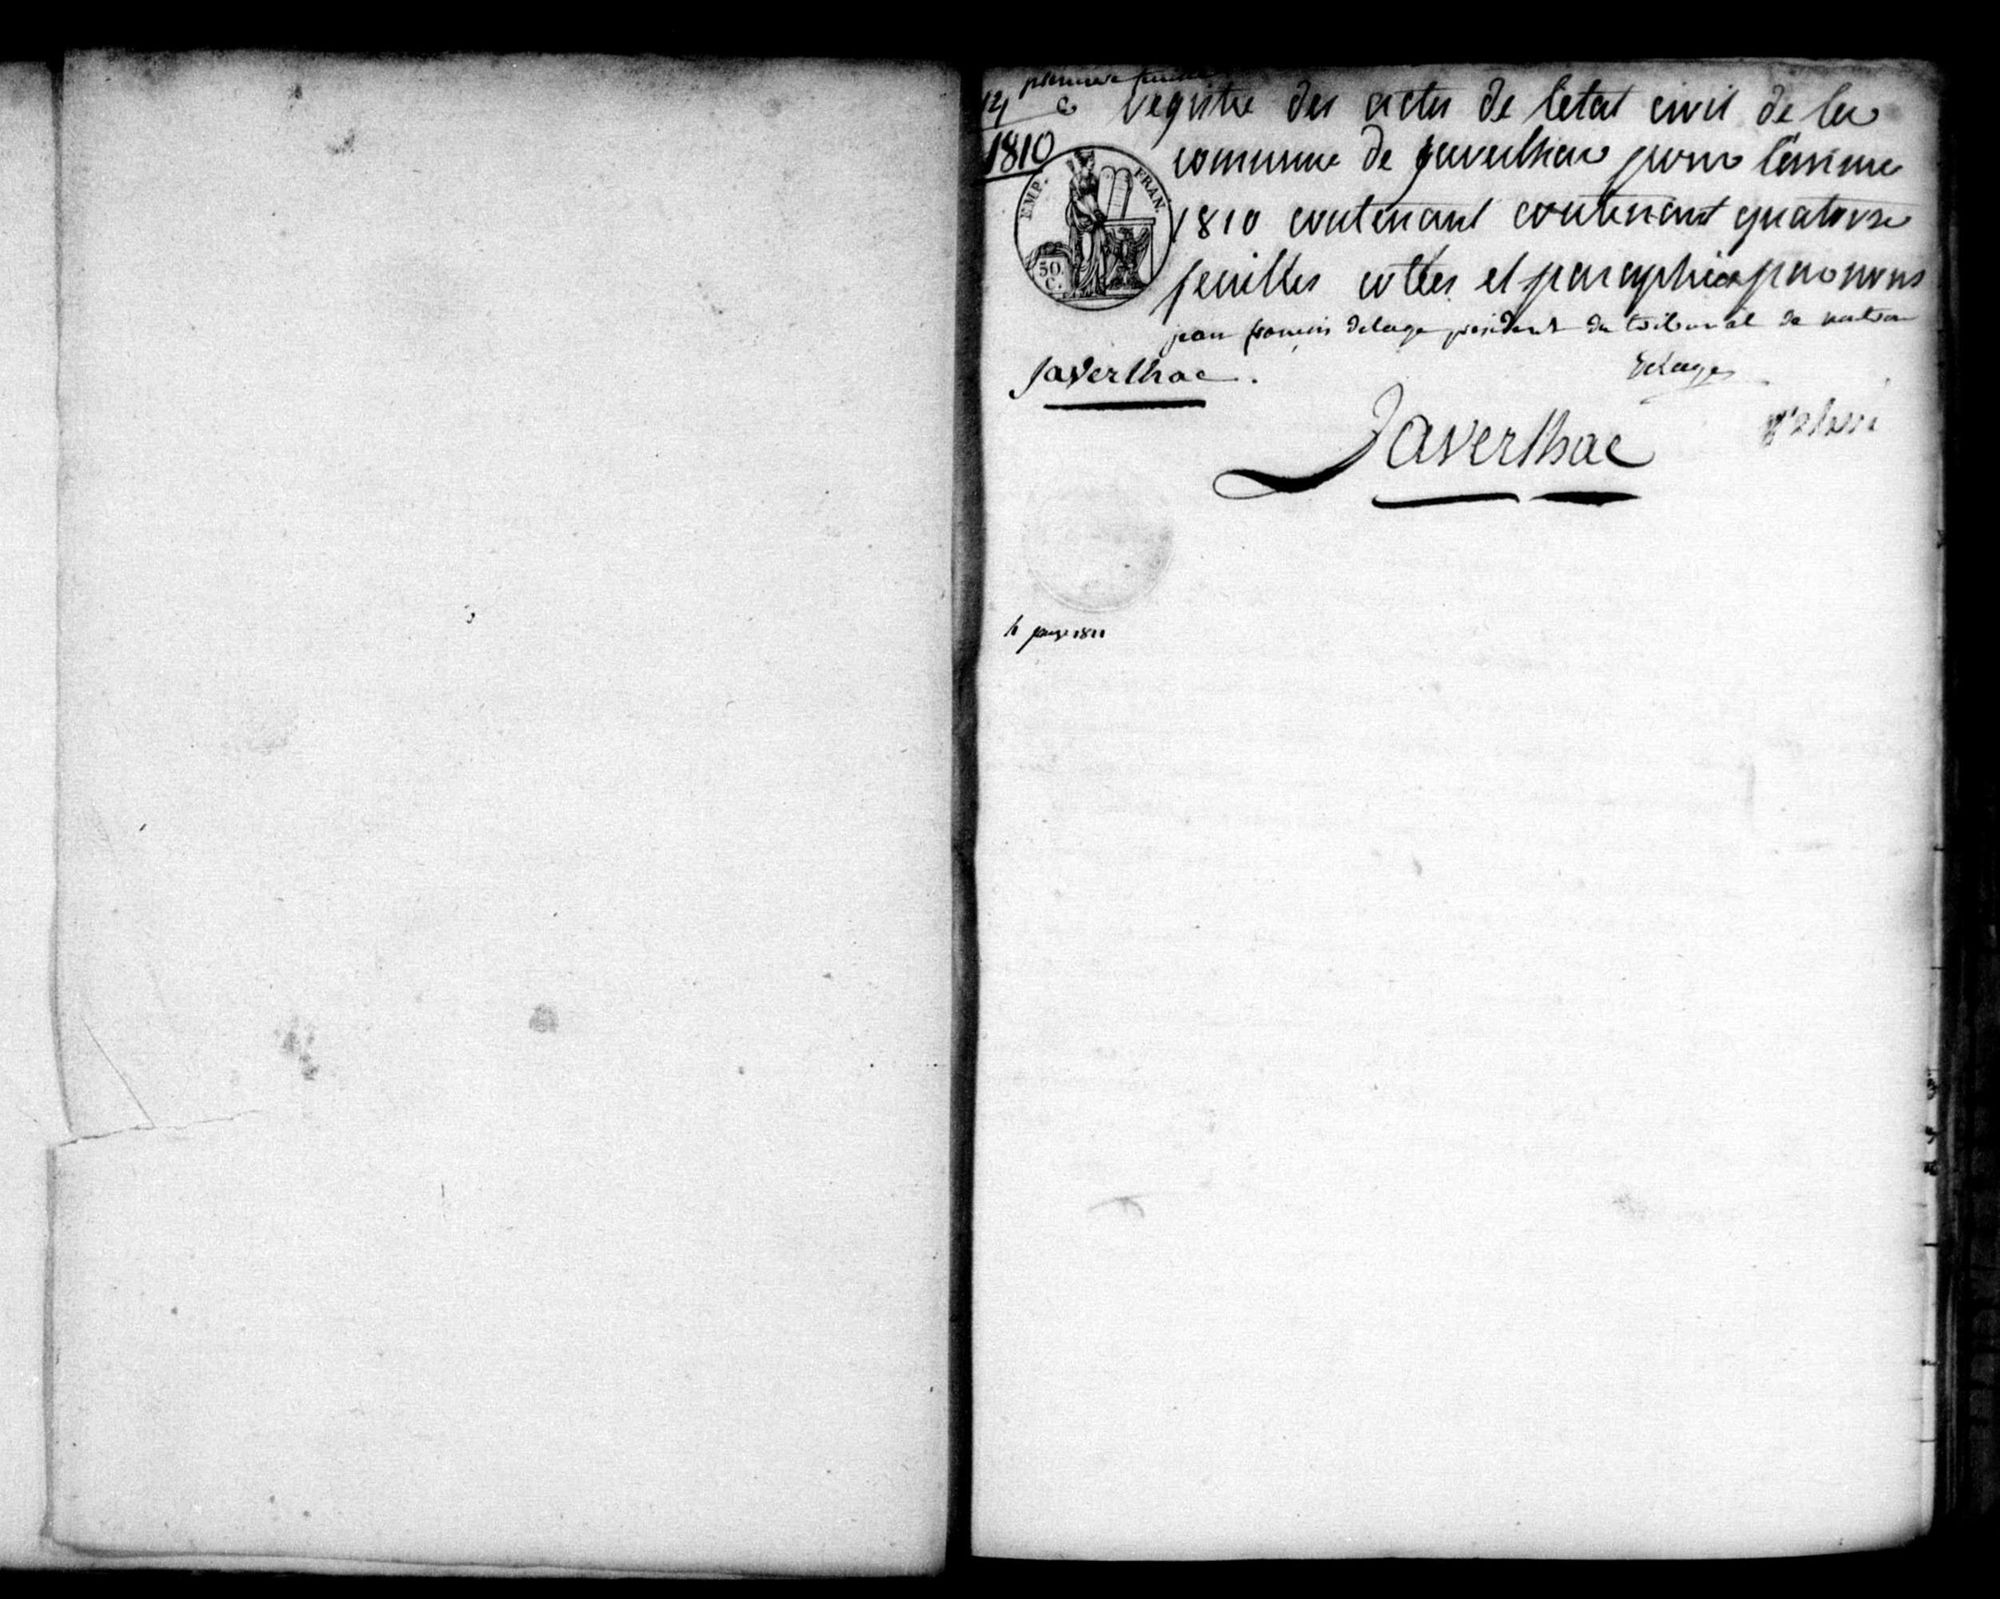 premiere feuille
14
1810
EMP. FRAN.
50. C.
registre des actes de l'etat civil de la
commune de javerlhac pour l'annee
1810 contenant contenant quatorse
feuilles cottées et paraphées par nous
jean francois delage president du tribunal de nontron
Javerlhac.
Delage
Javerlhac
1811